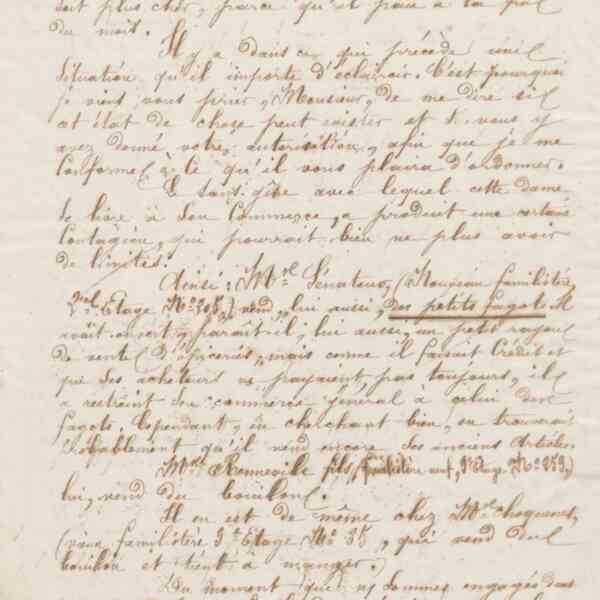 soit plus cher, parce qu'il paie à la fin
du mois.
Il y a dans ce qui précède une
situation qu'il importe d'éclaircir. C'est pourquoi
je viens vous prier, Monsieur, de me dire si
cet état de chose peut exister et si vous y
avez donné votre autorisation, afin que je me
conforme à ce qu'il vous plaira d'ordonner.
Le sans-gêne avec lequel cette dame
se livre à son commerce, a produit une certaine
contagion, qui pourrait bien ne plus avoir
de limites.
Ainsi: Mr Sénateur, (Nouveau familistère,
2me Etage No 205,) vend, lui aussi, des petits fagots. Il
avait ouvert, paraît-il, lui aussi, un petit rayon
de vente d'épiceries, mais comme il faisait crédit et
que ses acheteurs ne payaient pas toujours, il
a restreint son commerce général à celui des
fagots. Cependant, en cherchant bien, on trouverait
probablement qu'il vend encore ses anciens articles.
Mr Henneville fils, (familistère neuf, Etage No 259,)
lui, vend du bouillon.
Il en est de même chez Mr choquenet,
(vieux familistère 3e Etage No 35, qui vend du
bouillon et tient à manger.)
Du moment que nous sommes engagés dans